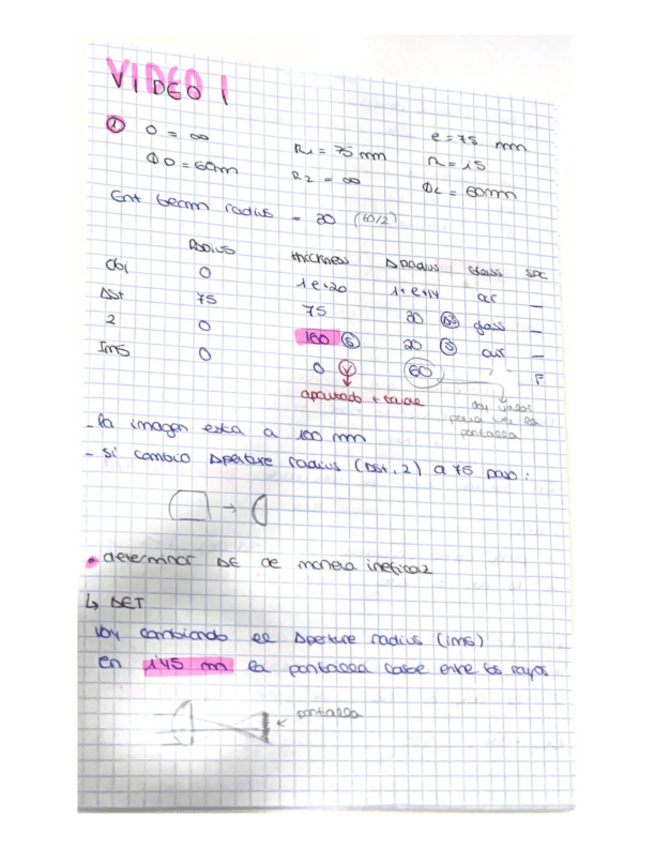 VIDEO 1
① O = ∞ R1 = 75 mm e = 75 mm
ΦO = 60mm R2 = ∞ n = 1'5
ΦL = 60mm
Ent beam radius = 30 (60/2)
RADIUS thickness Apradius Glass SPC
Obj 0 1e+20 1+e+14 air —
Ast 75 75 30 glass —
2 0 100 Ⓢ 30 Ⓢ air —
Ims 0 0 60 F
apartado + tarde
pantalla
- la imagen está a 100 mm
- si cambio Aperture radius (Ast, 2) a 75 paso:
• determinar AE de manera ineficaz
↳ AET
voy cambiando el Aperture radius (ims)
en 1'45 mm la pantalla cabe entre los rayos
pantalla